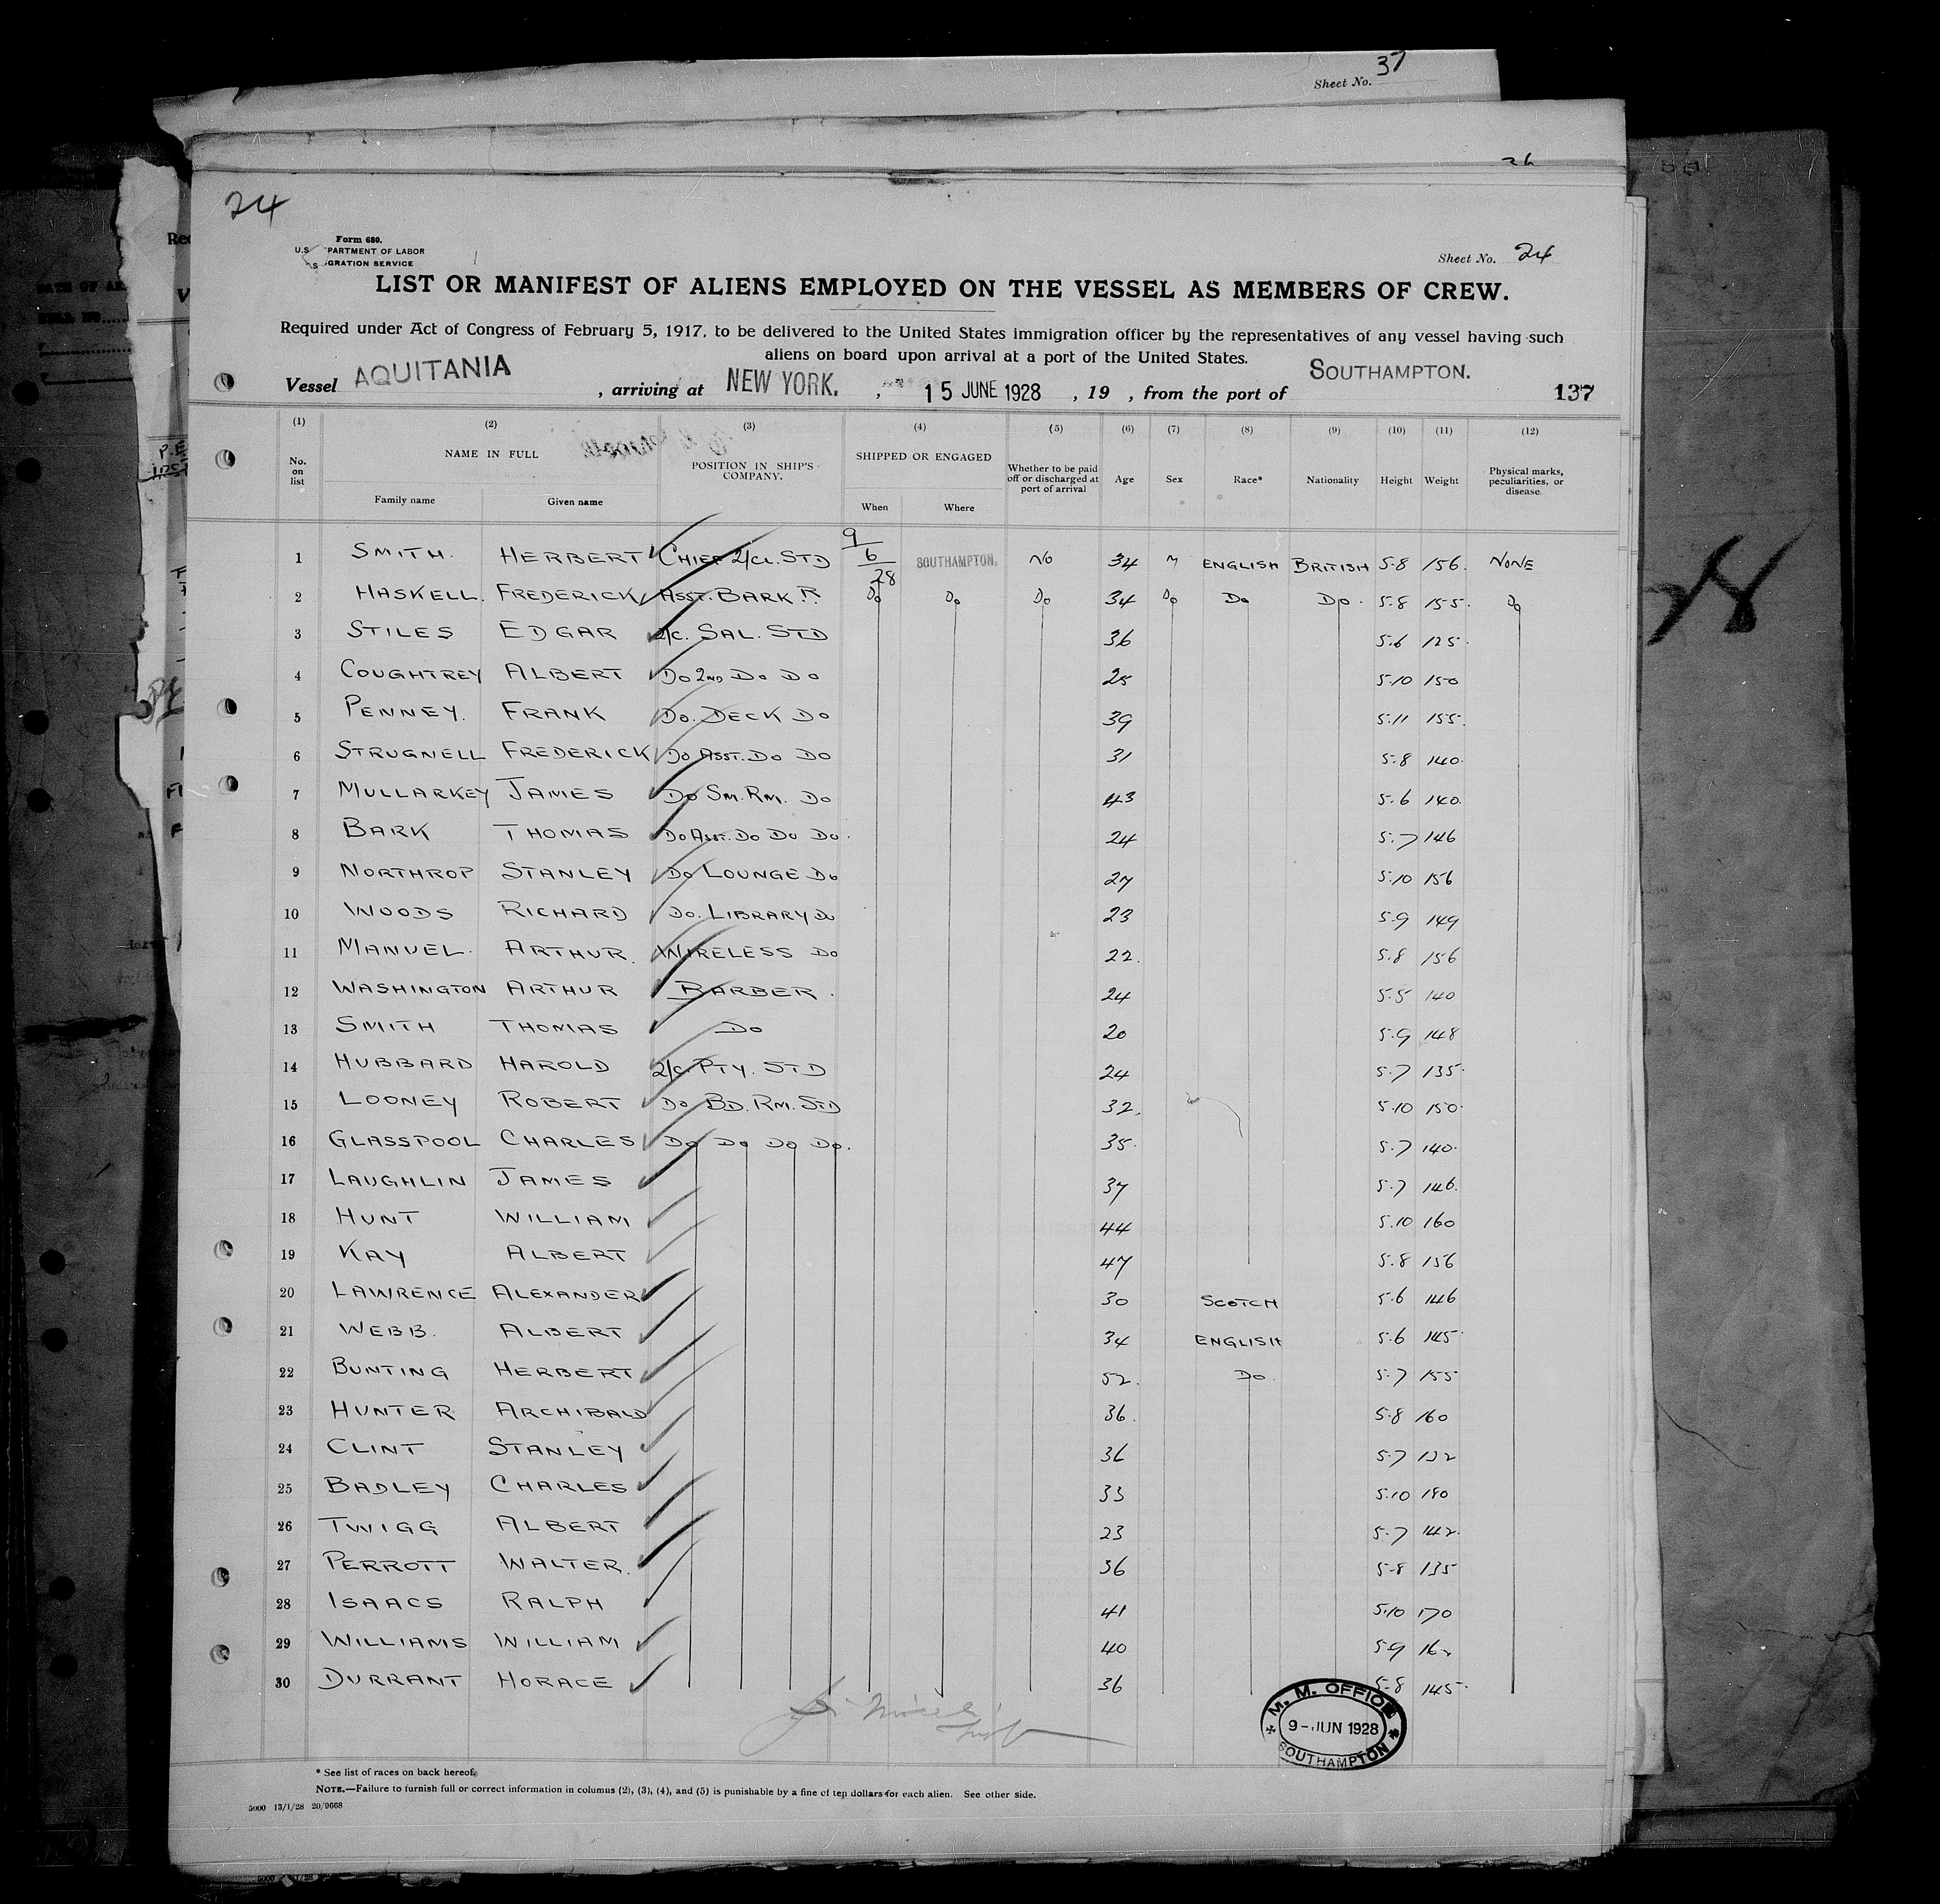 Sheet No. 37
26
24
Form 680.
U.S. PARTMENT OF LABOR
GRATION SERVICE
Sheet No. 24
LIST OR MANIFEST OF ALIENS EMPLOYED ON THE VESSEL AS MEMBERS OF CREW.
Required under Act of Congress of February 5, 1917, to be delivered to the United States immigration officer by the representatives of any vessel having such
aliens on board upon arrival at a port of the United States.
Vessel AQUITANIA , arriving at NEW YORK. , 15 JUNE 1928 , 19 , from the port of SOUTHAMPTON. 137
(1) (2) (3) (4) (5) (6) (7) (8) (9) (10) (11) (12)
No. on list NAME IN FULL POSITION IN SHIP'S COMPANY. SHIPPED OR ENGAGED Whether to be paid off or discharged at port of arrival Age Sex Race* Nationality Height Weight Physical marks, peculiarities, or disease.
Family name Given name When Where
1 SMITH. HERBERT CHIEF 2/CL. STD 9/6/28 SOUTHAMPTON. NO 34 M ENGLISH BRITISH 5.8 156. NONE
2 HASKELL. FREDERICK ASST. BARK R. Do Do Do 34 Do Do Do. 5.8 155. Do
3 STILES EDGAR 2/C. SAL. STD 36 5.6 125.
4 COUGHTREY ALBERT Do 2ND Do Do 25 5.10 150
5 PENNEY. FRANK Do. DECK Do 39 5.11 155.
6 STRUGNELL FREDERICK Do ASST. Do Do 31 5.8 140.
7 MULLARKEY JAMES Do SM. RM. Do 43 5.6 140.
8 BARK THOMAS Do ASST. Do Do Do. 24 5.7 146
9 NORTHROP STANLEY Do LOUNGE Do 27 5.10 156
10 WOODS RICHARD Do. LIBRARY Do 23 5.9 149
11 MANUEL. ARTHUR. WIRELESS Do 22. 5.8 156
12 WASHINGTON ARTHUR BARBER. 24 5.5 140
13 SMITH THOMAS Do 20 5.9 148
14 HUBBARD HAROLD 2/C. PTY. STD 24 5.7 135.
15 LOONEY ROBERT Do BD. RM. STD 32. 5.10 150.
16 GLASSPOOL CHARLES Do Do Do Do. 35. 5.7 140.
17 LAUGHLIN JAMES 37 5.7 146.
18 HUNT WILLIAM 44 5.10 160
19 KAY ALBERT 47 5.8 156
20 LAWRENCE ALEXANDER 30 SCOTCH 5.6 146
21 WEBB. ALBERT 34 ENGLISH 5.6 145.
22 BUNTING HERBERT 52. Do. 5.7 155
23 HUNTER ARCHIBALD 36. 5.8 160
24 CLINT STANLEY 36 5.7 132
25 BADLEY CHARLES 33 5.10 180
26 TWIGG ALBERT 23 5.7 142.
27 PERROTT WALTER. 36 5.8 135
28 ISAACS RALPH 41 5.10 170
29 WILLIAMS WILLIAM 40 5.9 162
30 DURRANT HORACE 36 5.8 145.
M. M. OFFICE
9-JUN 1928
SOUTHAMPTON
* See list of races on back hereof.
NOTE.—Failure to furnish full or correct information in columns (2), (3), (4), and (5) is punishable by a fine of ten dollars for each alien. See other side.
5000 13/1/28 20/9668